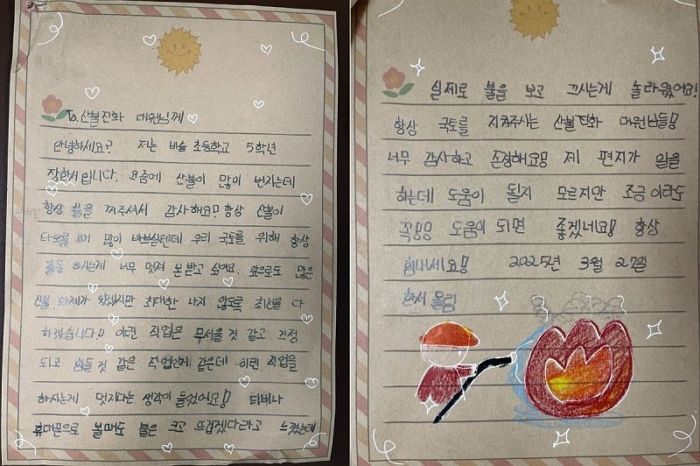 To. 산불진화 대원님께
안녕하세요? 저는 비슬 초등학교 5학년
장한서입니다. 요즘에 산불이 많이 번지는데
항상 불을 꺼주셔서 감사해요! 항상 산불이
많이 바쁘실텐데 우리 국토를 위해 항상
힘들 하시는게 너무 멋져 본받고 싶어요. 앞으로도 많은
있겠지만 최대한 나지 않도록 최선을 다
하겠습니다! 이런 직업은 무서울 것 같고 걱정
되고 힘들 것 같은 직업인게 같은데 이런 직업을
하시는게 멋지다는 생각이 들었어요! 티비나
휴대폰으로 볼때도 불은 크고 뜨겁겠다라고 느꼈는데
실제로 불을 보고 끄시는게 놀라웠어요!
항상 국토를 지켜주시는 산불진화 대원님들!
너무 감사하고 존경해요! 제 편지가 일을
하는데 도움이 될지 모르지만 조금이라도
꼭!!! 도움이 되면 좋겠네요! 항상
힘내세요! 2025년 3월 27일
한서 올림